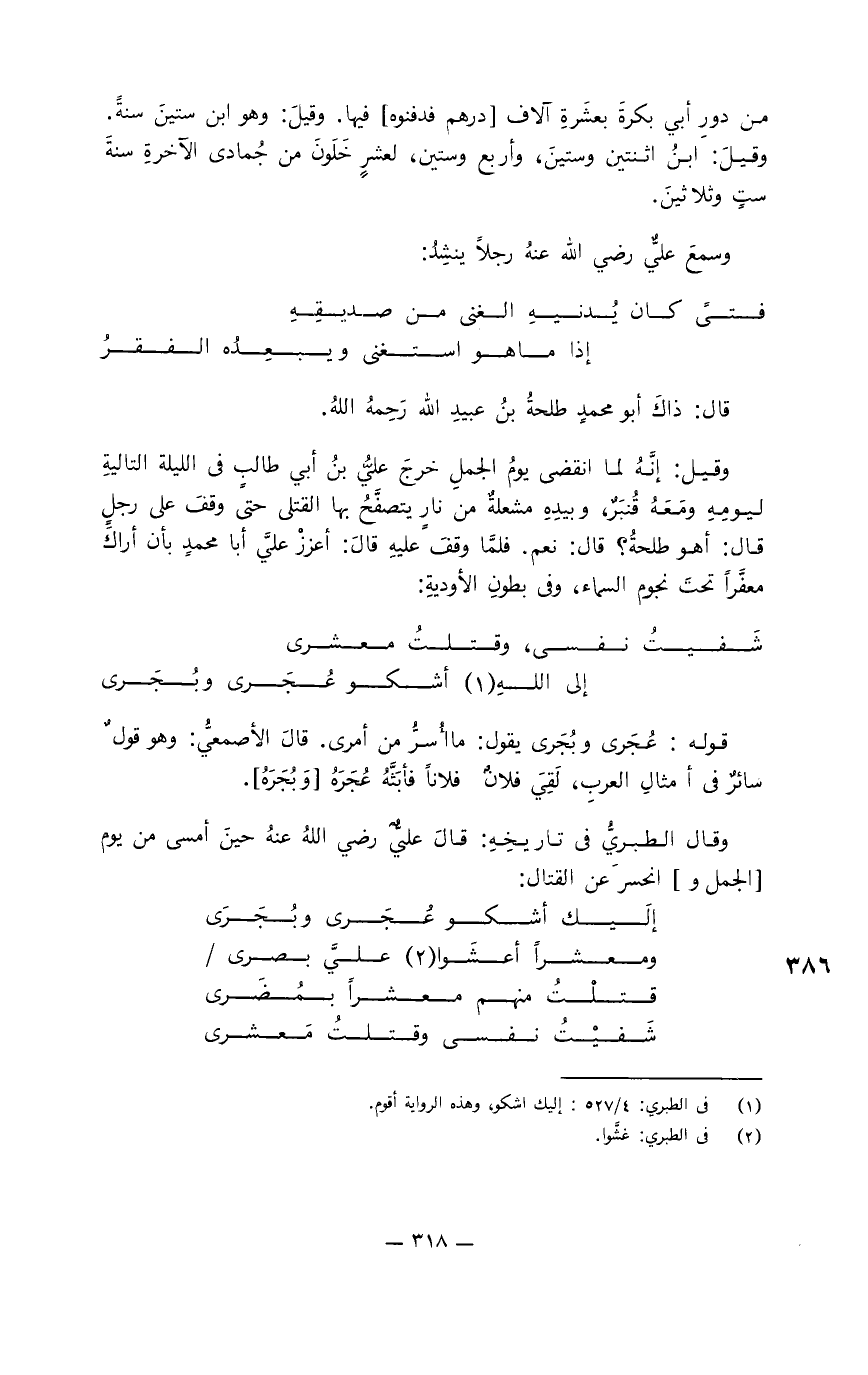 من دورِ أبي بكرةَ بعشَرةِ آلاف [درهم فدفنوه] فيها. وقيلَ: وهو ابن ستينَ سنةً.
وقيلَ: ابنُ اثنتين وستينَ، وأربع وستين، لعشرٍ خَلَونَ من جُمادى الآخرةِ سنةَ
ستٍ وثلاثينَ.
وسمعَ عليٌّ رضي الله عنهُ رجلاً ينشِدُ:
فتىً كان يُدنيهِ الغنى من صديقِهِ
إذا ماهو استغنى ويبعِدُه الفقرُ
قال: ذاكَ أبو محمدٍ طلحةُ بنُ عبيدِ الله رَحِمهُ اللهُ.
وقيل: إنَّهُ لما انقضى يومُ الجملِ خرجَ عليُّ بنُ أبي طالبٍ فى الليلة التاليةِ
ليومِهِ ومَعَهُ قُنبَرٌ، وبيدِهِ مشعلةٌ من نارٍ يتصفَّحُ بها القتلى حتى وقفَ على رجلٍ
قال: أهو طلحةُ؟ قال: نعم. فلمَّا وقفَ عليهِ قالَ: أعززْ عليَّ أبا محمدٍ بأن أراكَ
معفَّراً تحتَ نجومِ السماء، وفى بطونِ الأوديةِ:
شَفيتُ نفسى، وقتلتُ معشرى
إلى اللهِ(١) أشكو عُجَرى وبُجَرى
قوله : عُجَرى وبُجَرى يقول: ماأُسرُّ من أمرى. قالَ الأصمعيُّ: وهو قولٌ
سائرٌ فى أمثالِ العربِ، لَقِيَ فلانٌ فلاناً فأبثَّهُ عُجَرَهُ [وَبُجَرَهُ].
وقال الطبريُّ فى تاريخِهِ: قالَ عليٌّ رضي اللهُ عنهُ حينَ أمسى من يوم
[الجمل و] انحسرَ عن القتال:
إلَيك أشكو عُجَرى وبُجَرَى
ومعشراً أعشَوا(٢) عليَّ بصرى /
٣٨٦
قتلْتُ منهم معشراً بمُضَرى
شَفيْتُ نفسى وقتلتُ مَعشرى
(١) فى الطبري: ٥٢٧/٤ : إليك اشكو، وهذه الرواية أقوم.
(٢) فى الطبري: غشَّوا.
— ٣١٨ —